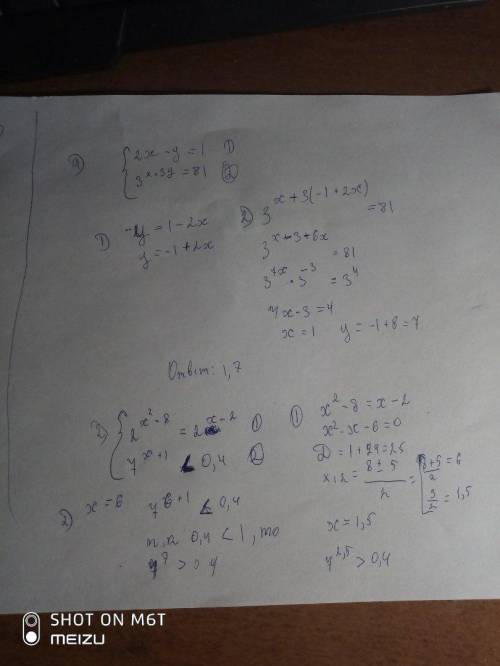 а) { 2x - y = 1 ①
3^(x+3y) = 81 ②
① -y = 1 - 2x
y = -1 + 2x
② 3^(x+3(-1+2x)) = 81
3^(x-3+6x) = 81
3^(7x) · 3^(-3) = 3^4
7x - 3 = 4
x = 1 y = -1 + 8 = 7
Ответ: 1, 7
2) { 2^(x²-8) = 2^(x-2) ①
7^(x+1) < 0,4 ②
① x² - 8 = x - 2
x² - x - 6 = 0
D = 1 + 24 = 25
x₁,₂ = (8 ± 5)/2 = [ (8+5)/2 = 6
3/2 = 1,5
2) x = 6 7^(6+1) < 0,4
т.к 0,4 < 1, то
7^7 > 0,4
x = 1,5
7^(2,5) > 0,4
SHOT ON M6T
MEIZU